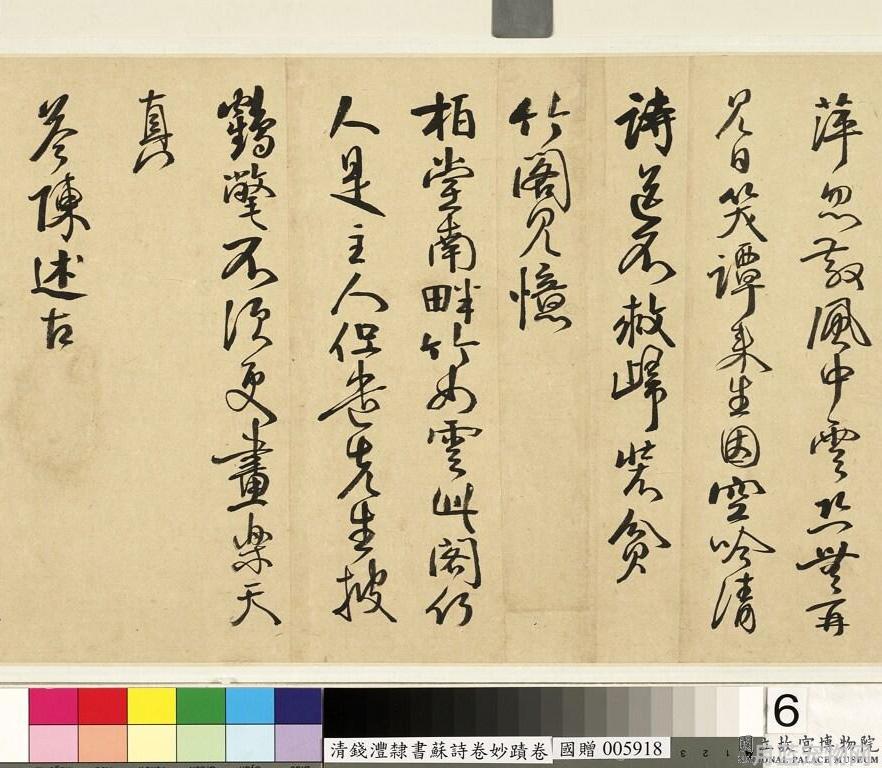 萍忽散風中雲恐無再
見日笑譚來生因空吟清
詩送不救歸裝貧
竹閣見憶
柏堂南畔竹如雲此閣何
人是主人但遣先生披
鶴氅不須更畫樂天
真
答陳述古
清錢灃隸書蘇詩卷妙蹟卷
國贈 005918
6
故宮博物院
NATIONAL PALACE MUSEUM